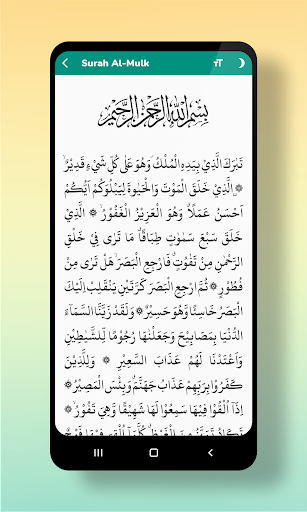 Surah Al-Mulk
بِسْمِ اللهِ الرَّحْمٰنِ الرَّحِيْمِ
تَبٰرَكَ الَّذِيْ بِيَدِهِ الْمُلْكُ وَهُوَ عَلٰى كُلِّ شَيْءٍ قَدِيْرٌ ۙ
۞الَّذِيْ خَلَقَ الْمَوْتَ وَالْحَيٰوةَ لِيَبْلُوَكُمْ اَيُّكُمْ
اَحْسَنُ عَمَلًا ۞ وَهُوَ الْعَزِيْزُ الْغَفُوْرُ ۞ الَّذِيْ
خَلَقَ سَبْعَ سَمٰوٰتٍ طِبَاقًا ؕ مَا تَرٰى فِيْ خَلْقِ
الرَّحْمٰنِ مِنْ تَفٰوُتٍ ؕ فَارْجِعِ الْبَصَرَ ۙ هَلْ تَرٰى مِنْ
فُطُوْرٍ ۞ ثُمَّ ارْجِعِ الْبَصَرَ كَرَّتَيْنِ يَنْقَلِبْ اِلَيْكَ
الْبَصَرُ خَاسِئًا وَّهُوَ حَسِيْرٌ ۞ وَلَقَدْ زَيَّنَّا السَّمَآءَ
الدُّنْيَا بِمَصَابِيْحَ وَجَعَلْنٰهَا رُجُوْمًا لِّلشَّيٰطِيْنِ
وَاَعْتَدْنَا لَهُمْ عَذَابَ السَّعِيْرِ ۞ وَلِلَّذِيْنَ
كَفَرُوْا بِرَبِّهِمْ عَذَابُ جَهَنَّمَ ؕ وَبِئْسَ الْمَصِيْرُ ۞
اِذَآ اُلْقُوْا فِيْهَا سَمِعُوْا لَهَا شَهِيْقًا وَّهِيَ تَفُوْرُ ۙ ۞
تَكَادُ تَمَيَّزُ مِنَ الْغَيْظِ ؕ كُلَّمَآ اُلْقِيَ فِيْهَا فَوْجٌ